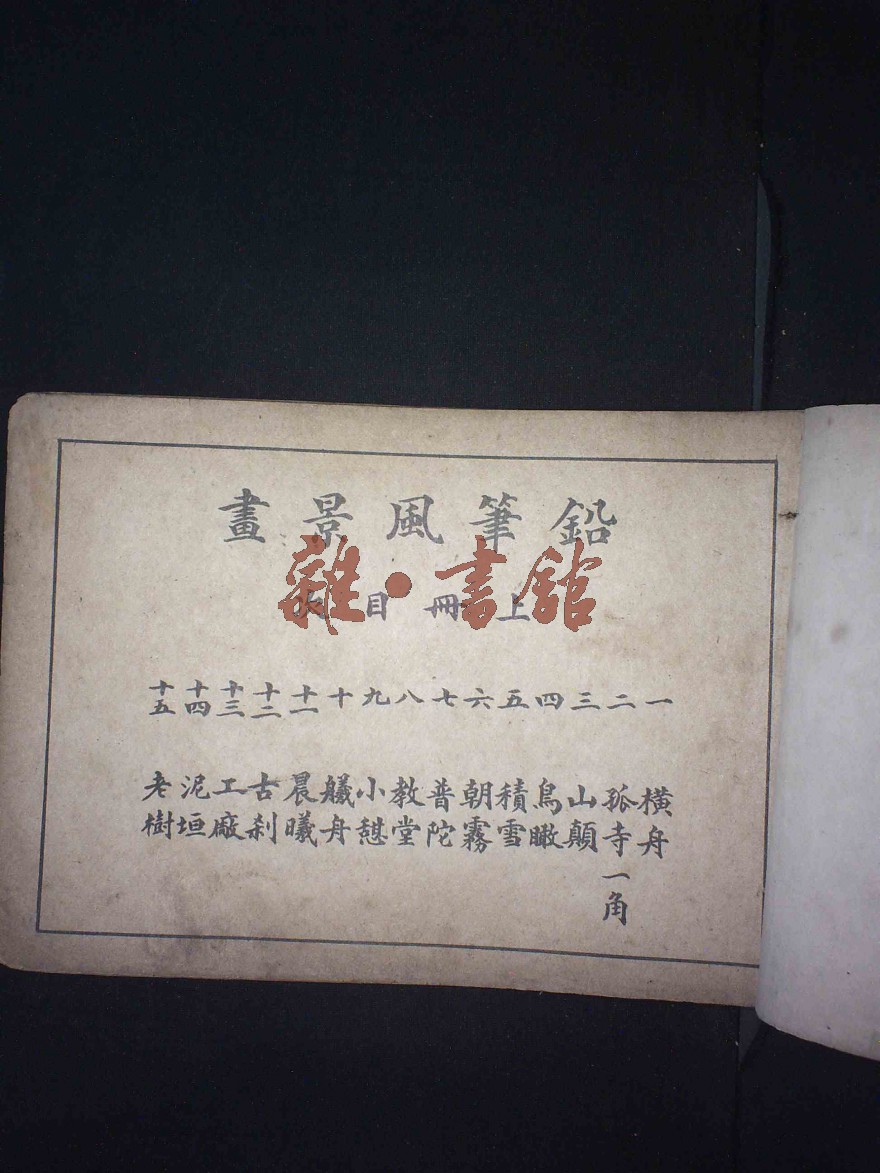 鉛筆風景畫
上冊目次
雜·書館
一 橫舟
二 孤寺一角
三 山顛
四 鳥瞰
五 積雪
六 朝霧
七 普陀
八 教堂
九 小憩
十 艤舟
十一 晨曦
十二 古刹
十三 工廠
十四 泥垣
十五 老樹